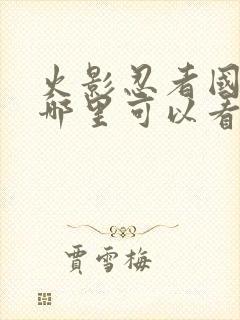 火影忍者國
哪里可以看
賈雪梅